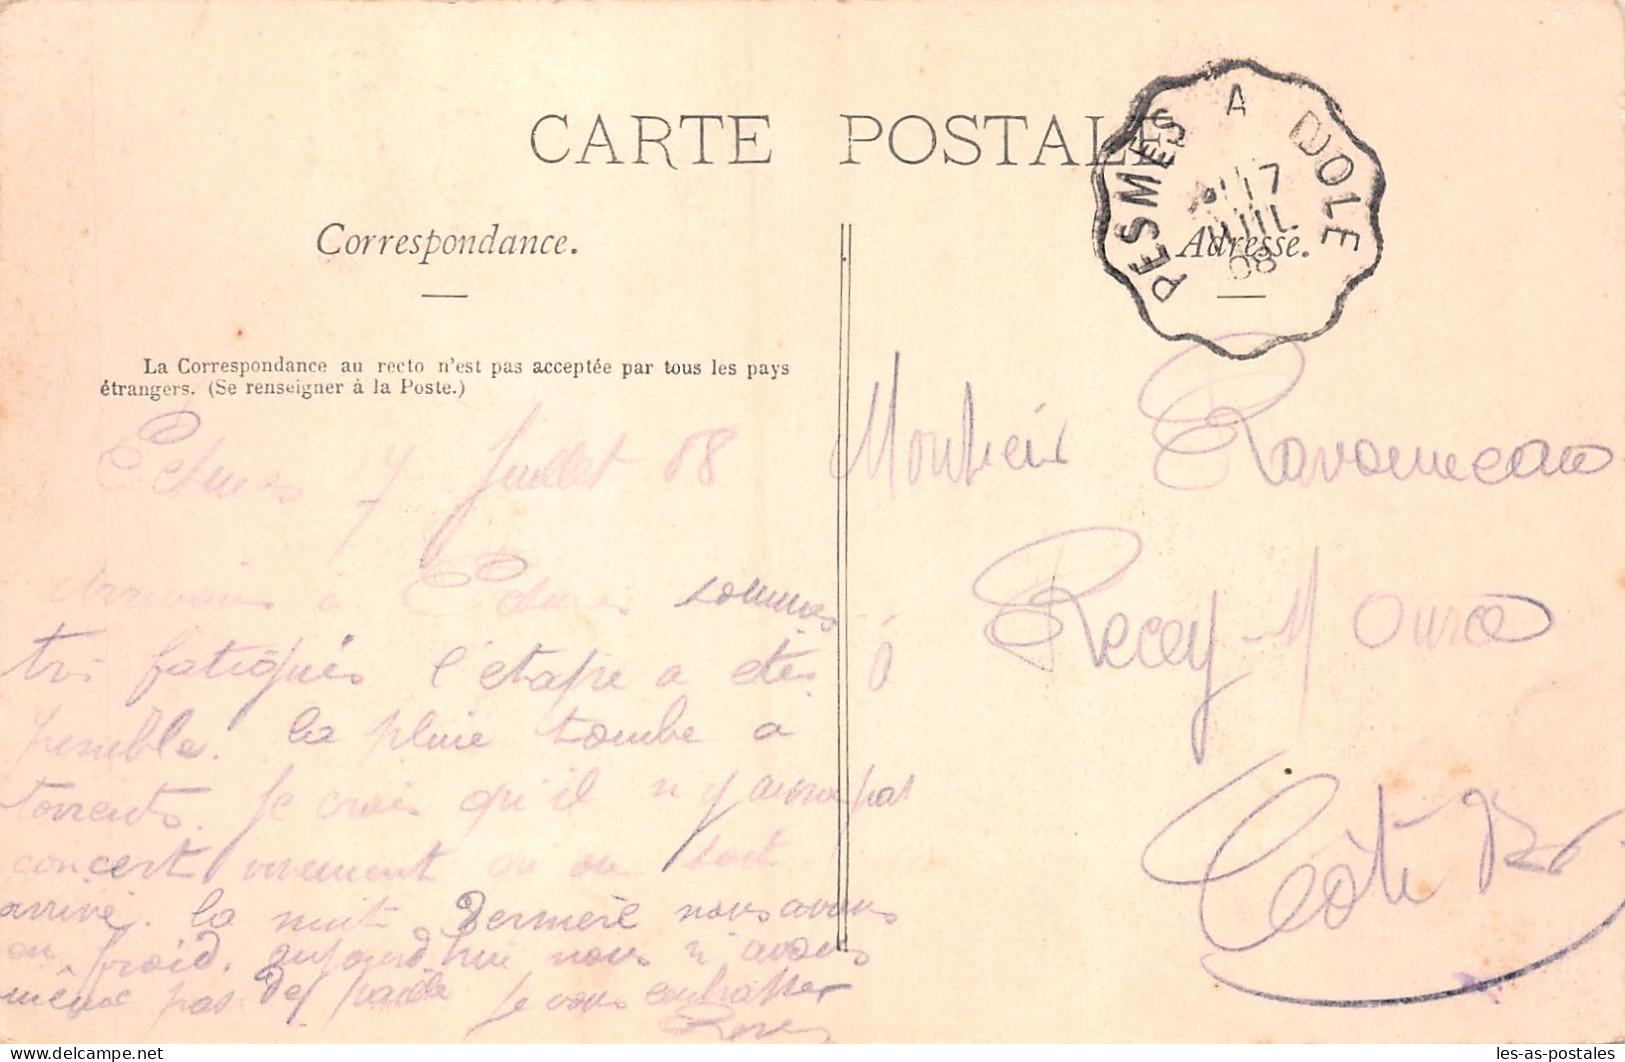 CARTE POSTALE
PESMES A DOLE
17
JUIL
08
Correspondance.
Adresse.
La Correspondance au recto n'est pas acceptée par tous les pays
étrangers. (Se renseigner à la Poste.)
7 Juillet 08
à sommes
fatigués l'etape a etes
penible. La pluie tombe a
torrents. Je crois qu'il n'y aura pas
concert vivement qu'on soit
arrivé. La nuit derniere nous avons
eu froid. aujourd'hui nous n'avons
même pas de paille Je vous embrasse
Monsieur
Recey-s/Ource
Côte d'or
les-as-postales